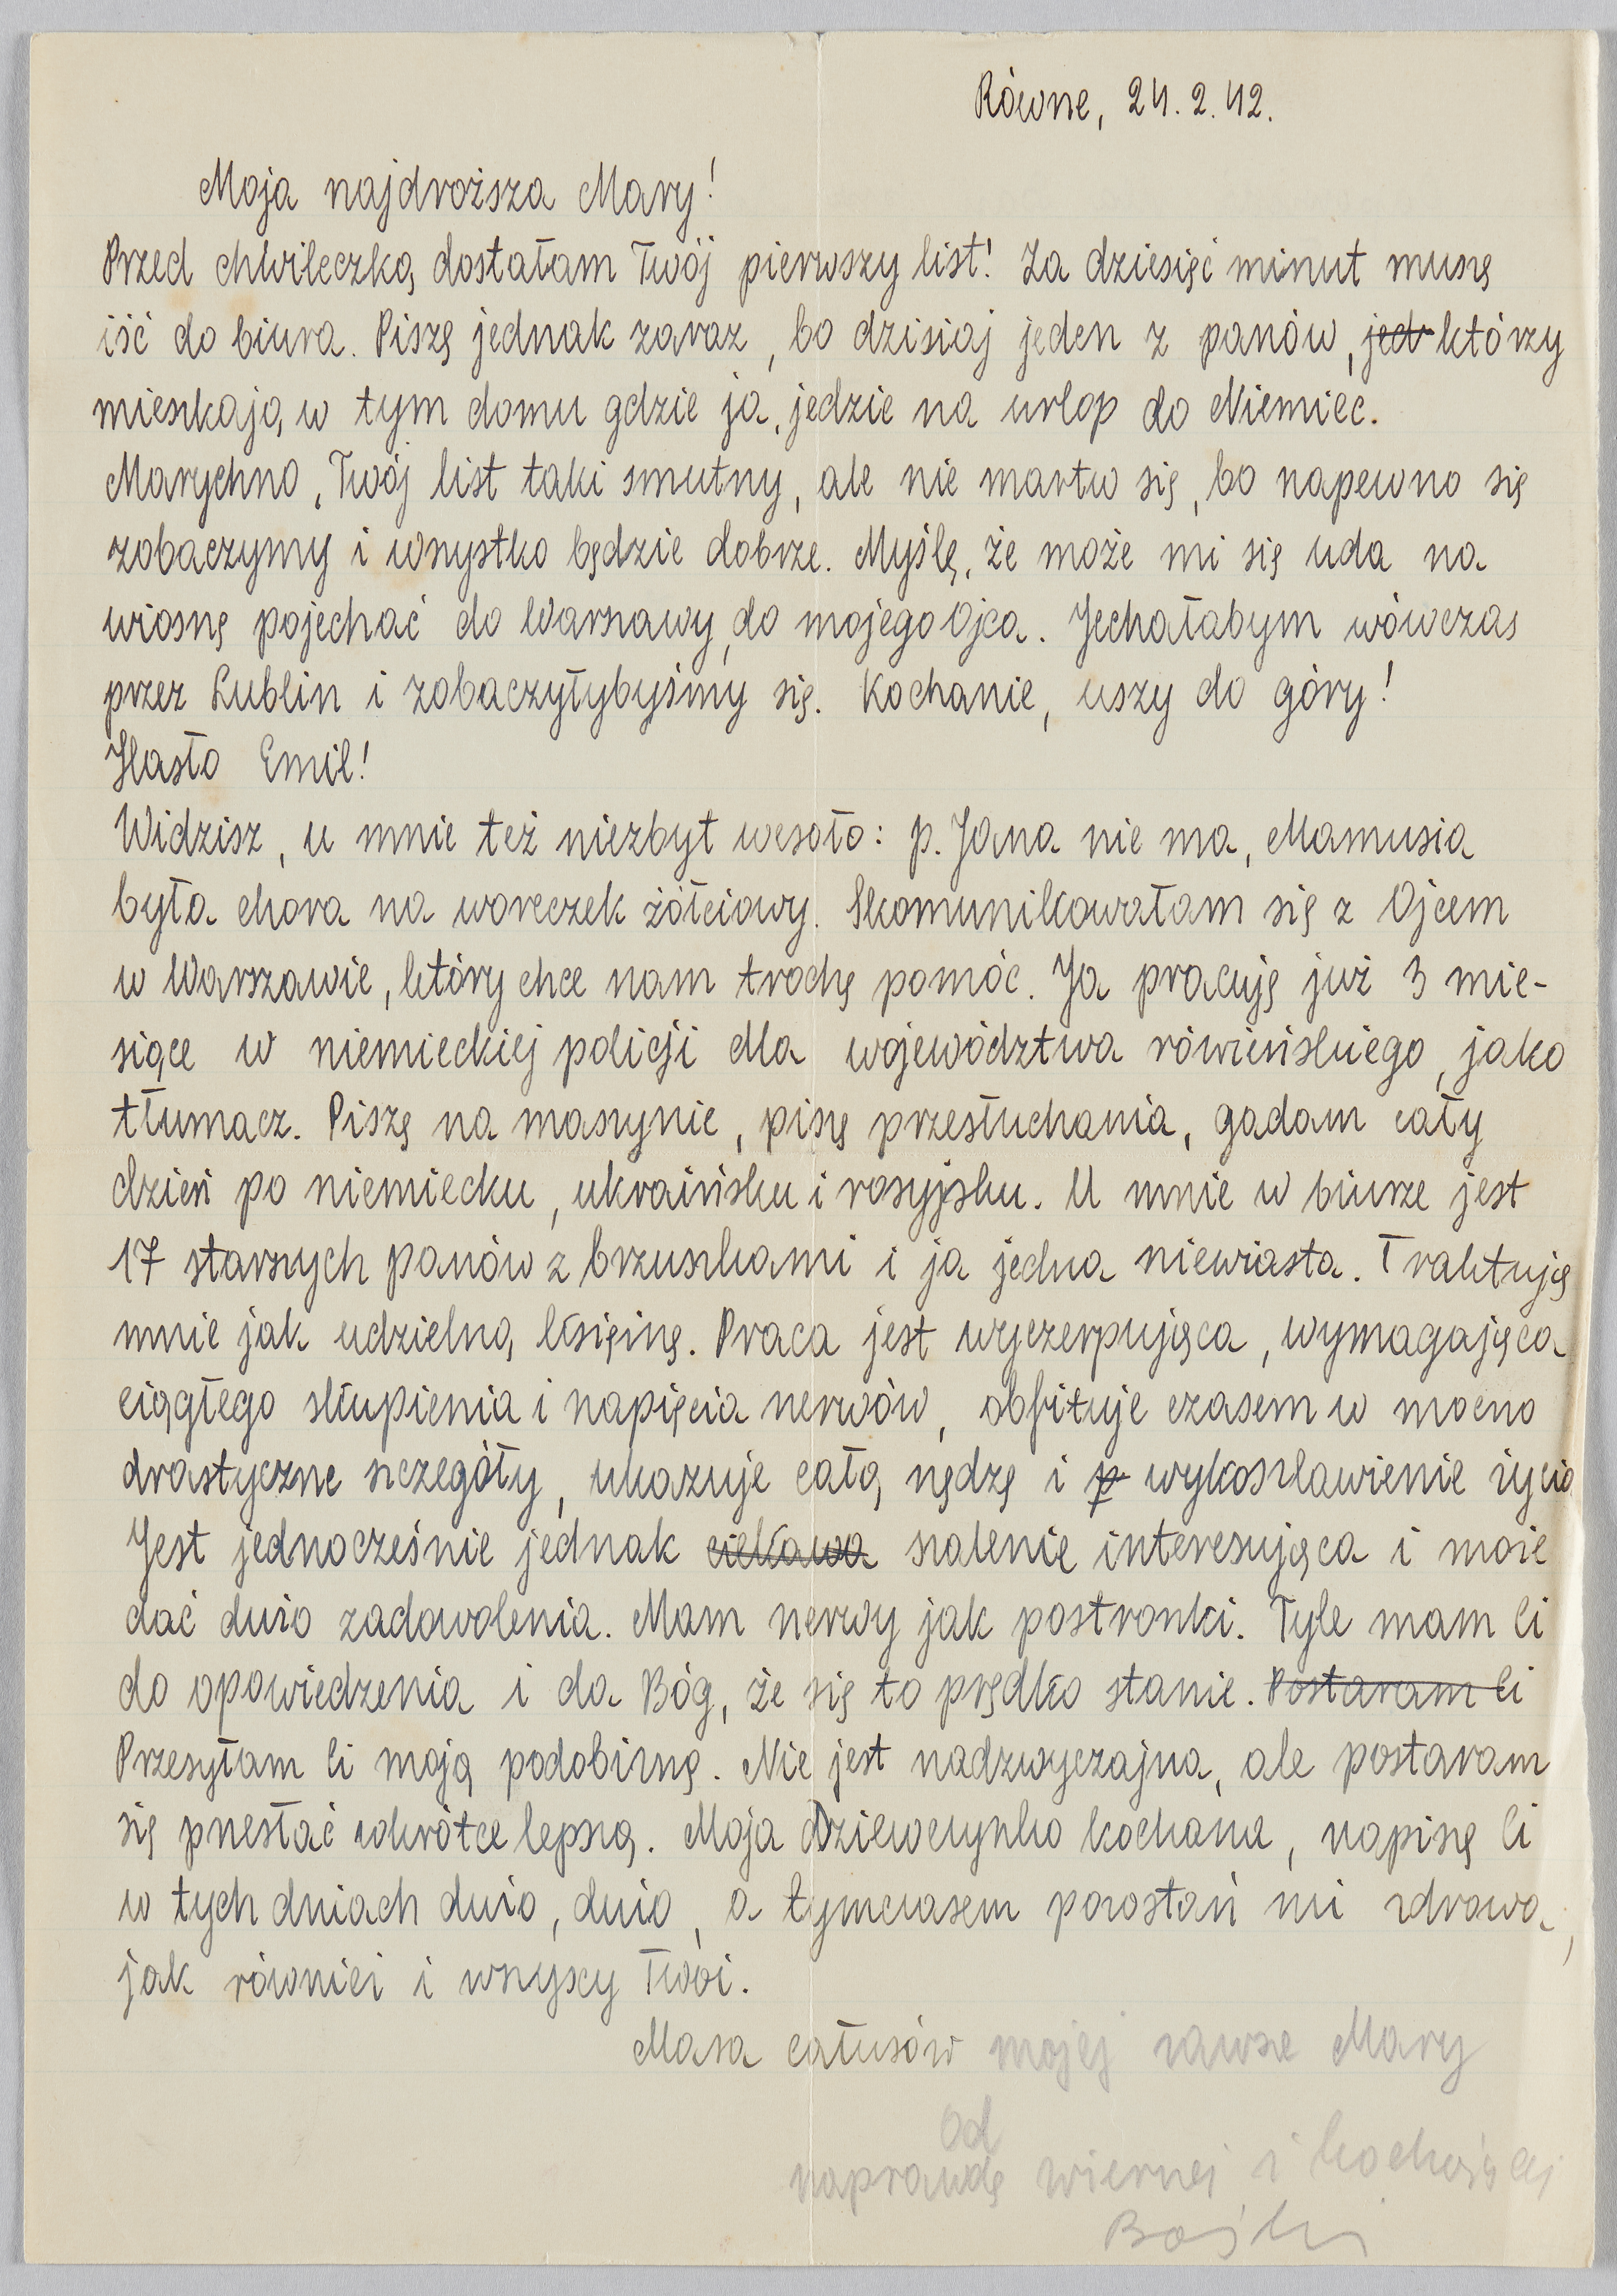 Równe, 24.2.42.
Moja najdroższa Mary!
Przed chwileczką dostałam Twój pierwszy list! Za dziesięć minut muszę
iść do biura. Piszę jednak zaraz, bo dzisiaj jeden z panów, jed którzy
mieszkają w tym domu gdzie ja, jedzie na urlop do Niemiec.
Marychno, Twój list taki smutny, ale nie martw się, bo napewno się
zobaczymy i wszystko będzie dobrze. Myślę, że może mi się uda na
wiosnę pojechać do Warszawy, do mojego Ojca. Jechałabym wówczas
przez Lublin i zobaczyłybyśmy się. Kochanie, uszy do góry!
Hasło Emil!
Widzisz, u mnie też niezbyt wesoło: p. Jana nie ma, Mamusia
była chora na woreczek żółciowy. Skomunikowałam się z Ojcem
w Warszawie, który chce nam trochę pomóc. Ja pracuję już 3 mie-
siące w niemieckiej policji dla województwa rówieńskiego, jako
tłumacz. Piszę na maszynie, piszę przesłuchania, gadam cały
dzień po niemiecku, ukraińsku i rosyjsku. U mnie w biurze jest
17 starszych panów z brzuszkami i ja jedna niewiasta. Traktują
mnie jak udzielną księżnę. Praca jest wyczerpująca, wymagająca
ciągłego skupienia i napięcia nerwów, obfituje czasem w mocno
drastyczne szczegóły, ukazuje całą nędzę i p wykoszlawienie życia
Jest jednocześnie jednak ciekawa szalenie interesująca i może
dać dużo zadowolenia. Mam nerwy jak postronki. Tyle mam Ci
do opowiedzenia i da Bóg, że się to prędko stanie. Postaram Ci
Przesyłam Ci moją podobiznę. Nie jest nadzwyczajna, ale postaram
się przesłać wkrótce lepszą. Moja dziewczynko kochana, napiszę Ci
w tych dniach dużo, dużo, a tymczasem pozostań mi zdrowa,
jak również i wszyscy Twoi.
Masa całusów mojej zawsze Mary
od
naprawdę wiernej i kochającej
Baśki